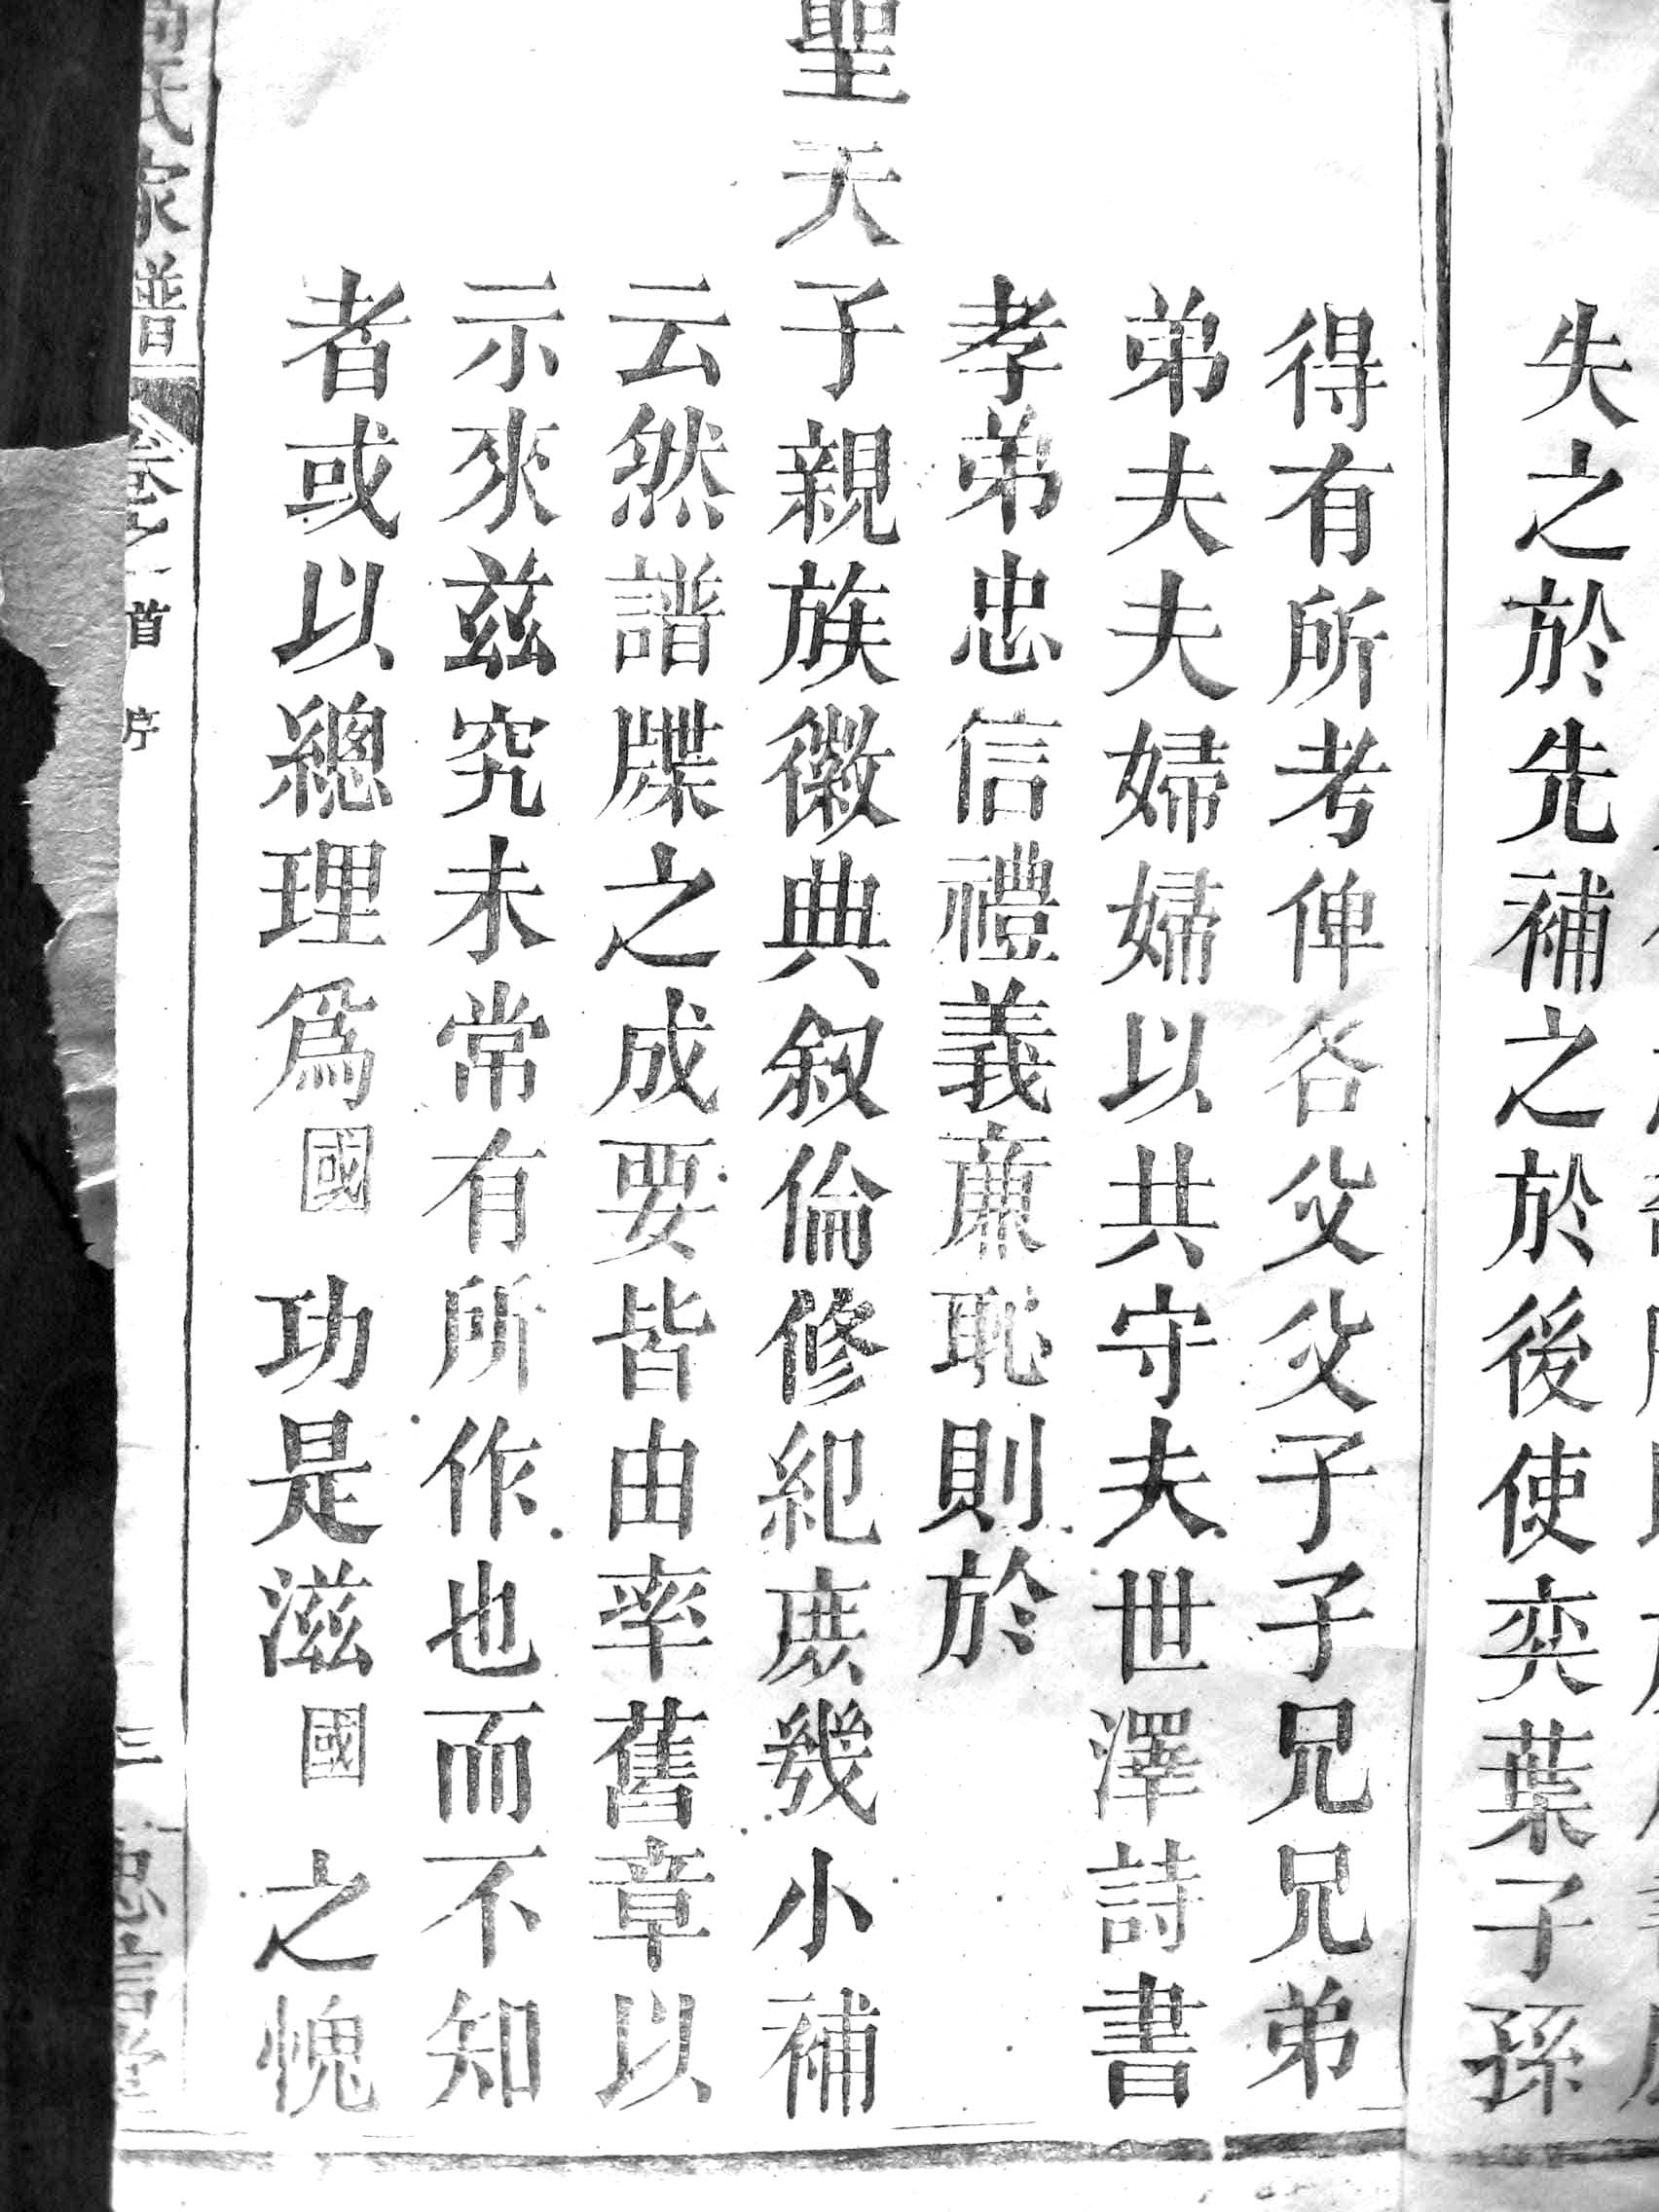 失之於先補之於後使奕葉子孫
得有所考俾各父父子子兄兄弟
弟夫夫婦婦以共守夫世澤詩書
孝弟忠信禮義廉恥則於
聖天子親族徽典叙倫修紀庶幾小補
云然譜牒之成要皆由率舊章以
示來兹究未常有所作也而不知
者或以總理爲國功是滋國之愧
氏家譜
卷之首
序
三